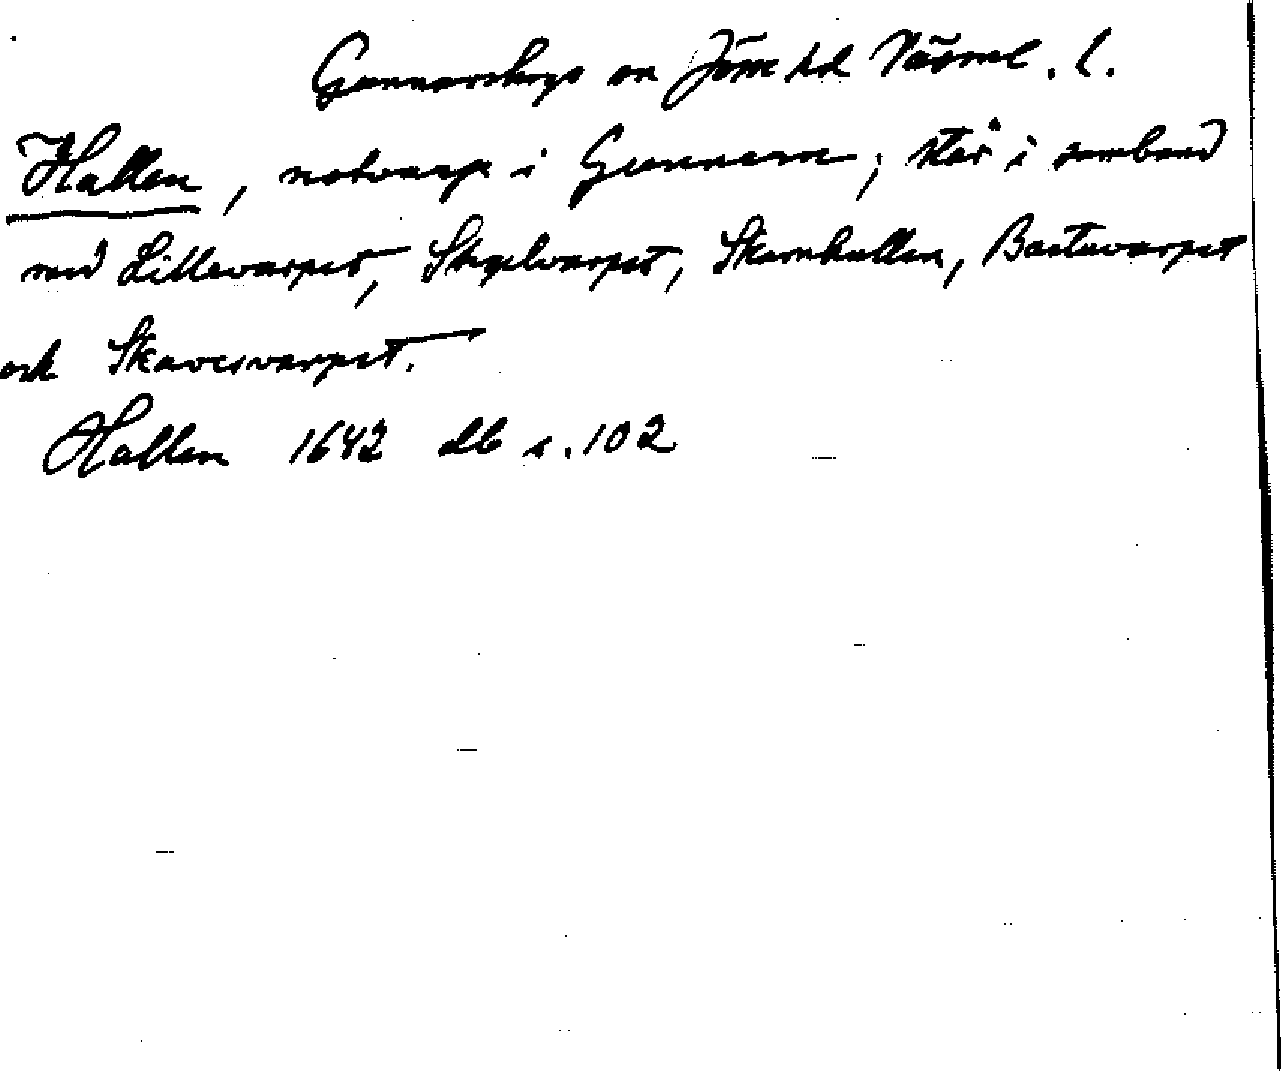 Gunnarskogs sn Jösse hd Värml. l.
Hallen, notvarp i Gunnern; står i samband
med Lillevarpet, Skogelvarpet, Skarnhallen, Bastavarpet
och Skavesvarpet.
Hallen 1642 db s. 102